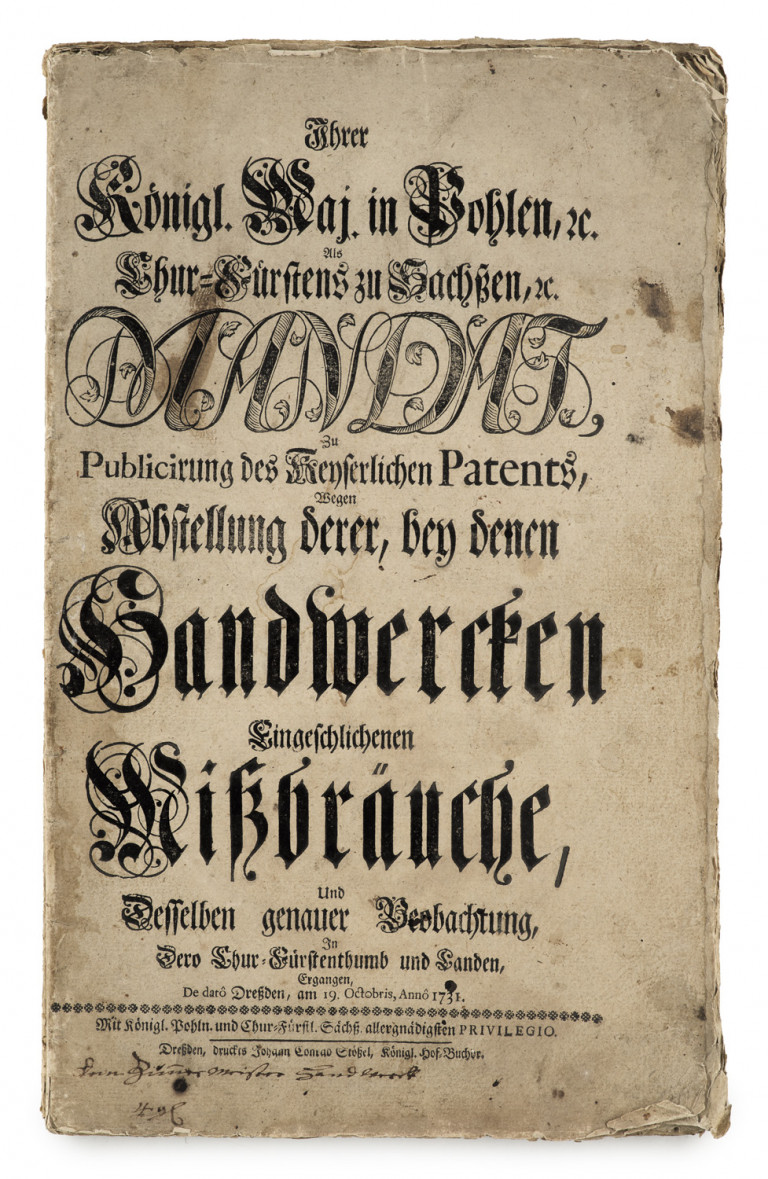 Ihrer
Königl. Maj. in Pohlen, ꝛc.
Als
Chur-Fürstens zu Sachßen, ꝛc.
MANDAT,
Zu
Publicirung des Keyserlichen Patents,
Wegen
Abstellung derer, bey denen
Handwercken
Eingeschlichenen
Mißbräuche,
Und
Desselben genauer Beobachtung,
In
Dero Chur-Fürstenthumb und Landen,
Ergangen,
De datô Dreßden, am 19. Octobris, Annô 1731.
Mit Königl. Pohln. und Chur-Fürstl. Sächß. allergnädigsten PRIVILEGIO.
Dreßden, druckts Johann Conrad Stößel, Königl. Hof-Buchdr.
Meister Handwerck